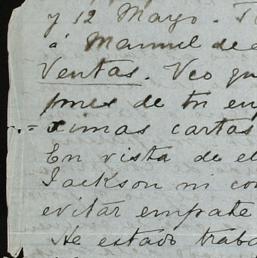 y 12 Mayo.
á Manuel de
Ventas. Veo
pues de tu
ximas cartas
En vista de
Jackson ni
evitar empate
He estado